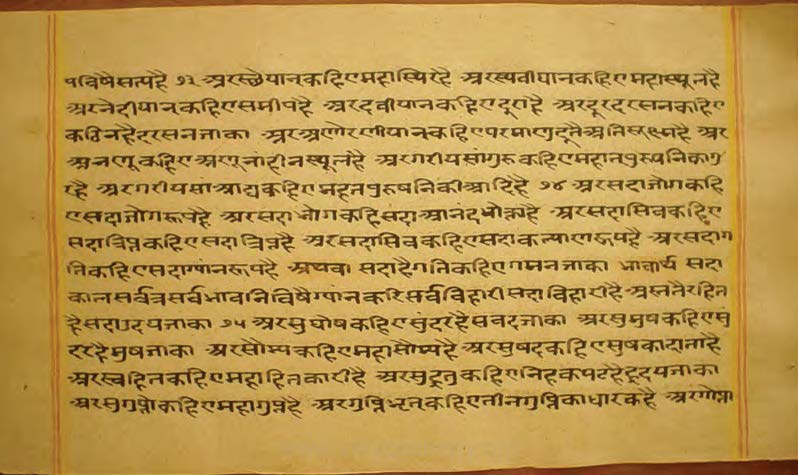 षविषैसत्यहै ७३ अरस्छेयानकहिएमहास्थिरहै अरस्थवीयानकहिएमहास्थूलहै
अरनेदीयानकहिएसमीपहै अरदवीयानकहिएदूरहै अरदूरदरसनकहिए
कठिनहैदरसनजाका अरअणोरणीयानकहिएपरमाणुतैअतिसूक्ष्महै अर
अनणूकहिएअणूनाहीनस्थूलहै अरगरीयसांगुरुकहिएमहानपुरुषनिकागु
रहै अरगरीयसांआद्यकहिएमहतपुरुषनिकीआदिहै ७४ अरसदाजोगकहि
एसदाजोगरूपहै अरसदाभोगकहिसदाआनंदभोक्ताहै अरसदात्रिप्तकहिए
सदात्रिप्तकहिएसदात्रिप्तहै अरसदासिवकहिएसदाकल्याणरूपहै अरसदाग
तिकहिएसदाग्यानरूपहै अथवा सदाहैगतिकहिएगमनजाका भावार्थ सदा
कालसर्वत्रसर्वभावनिविषैग्यानकरिसर्वविहारीसदाविहारीहै अस्ततैरहित
हैसदाउदयजाका ७५ अरसुघोषकहिएसुंदरहैसबदजाका अरसुमुषकहिएसुं
दरहैमुषजाका अरसौम्यकहिएमहासौम्यहै अरसुषदकहिएसुषकादाताहै
अरस्वहितकहिएमहाहितकारीहै अरसुहृतकहिएनिहकपटहैहृदयजाका
अरसुगुप्तोकहिएमहागुप्तहै अरगुप्तिभृतकहिएतीनगुप्तिकाधारकहै अरगोप्ता